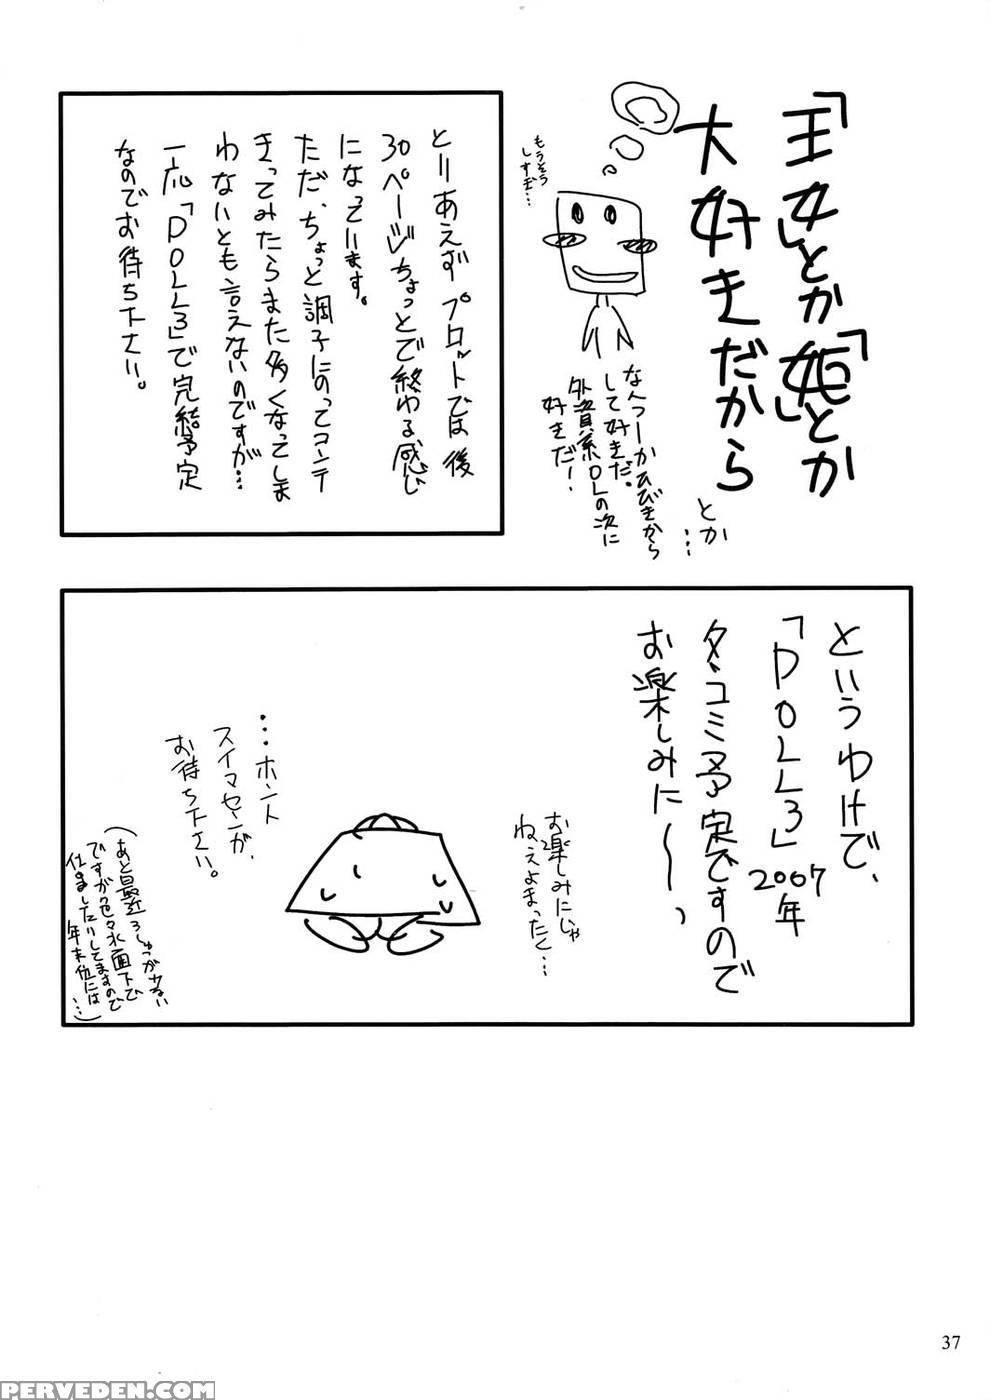 「王女」とか「姫」とか
大好きだから
とか
…
もうそう
しすぎ…
なんつーかひびきから
して好きだ。
外資系OLの次に
好きだ！
とりあえずプロットでは後
30ページちょっとで終わる感じ
になっています。
ただ、ちょっと調子にのってコンテ
きってみたらまた多くなってしま
わないとも言えないのですが…
一応「DOLL3」で完結予定
なのでお待ち下さい。
というわけで、
「DOLL3」2007年
冬コミ予定ですので
お楽しみに～っ
お楽しみにじゃ
ねぇよまったく…
…ホント
スイマセンが、
お待ち下さい。
（あと最近ろしゅつが少ない
ですが色々水面下で
仕事したりしてますので
年末位には
…）
37
PERVEDEN.COM